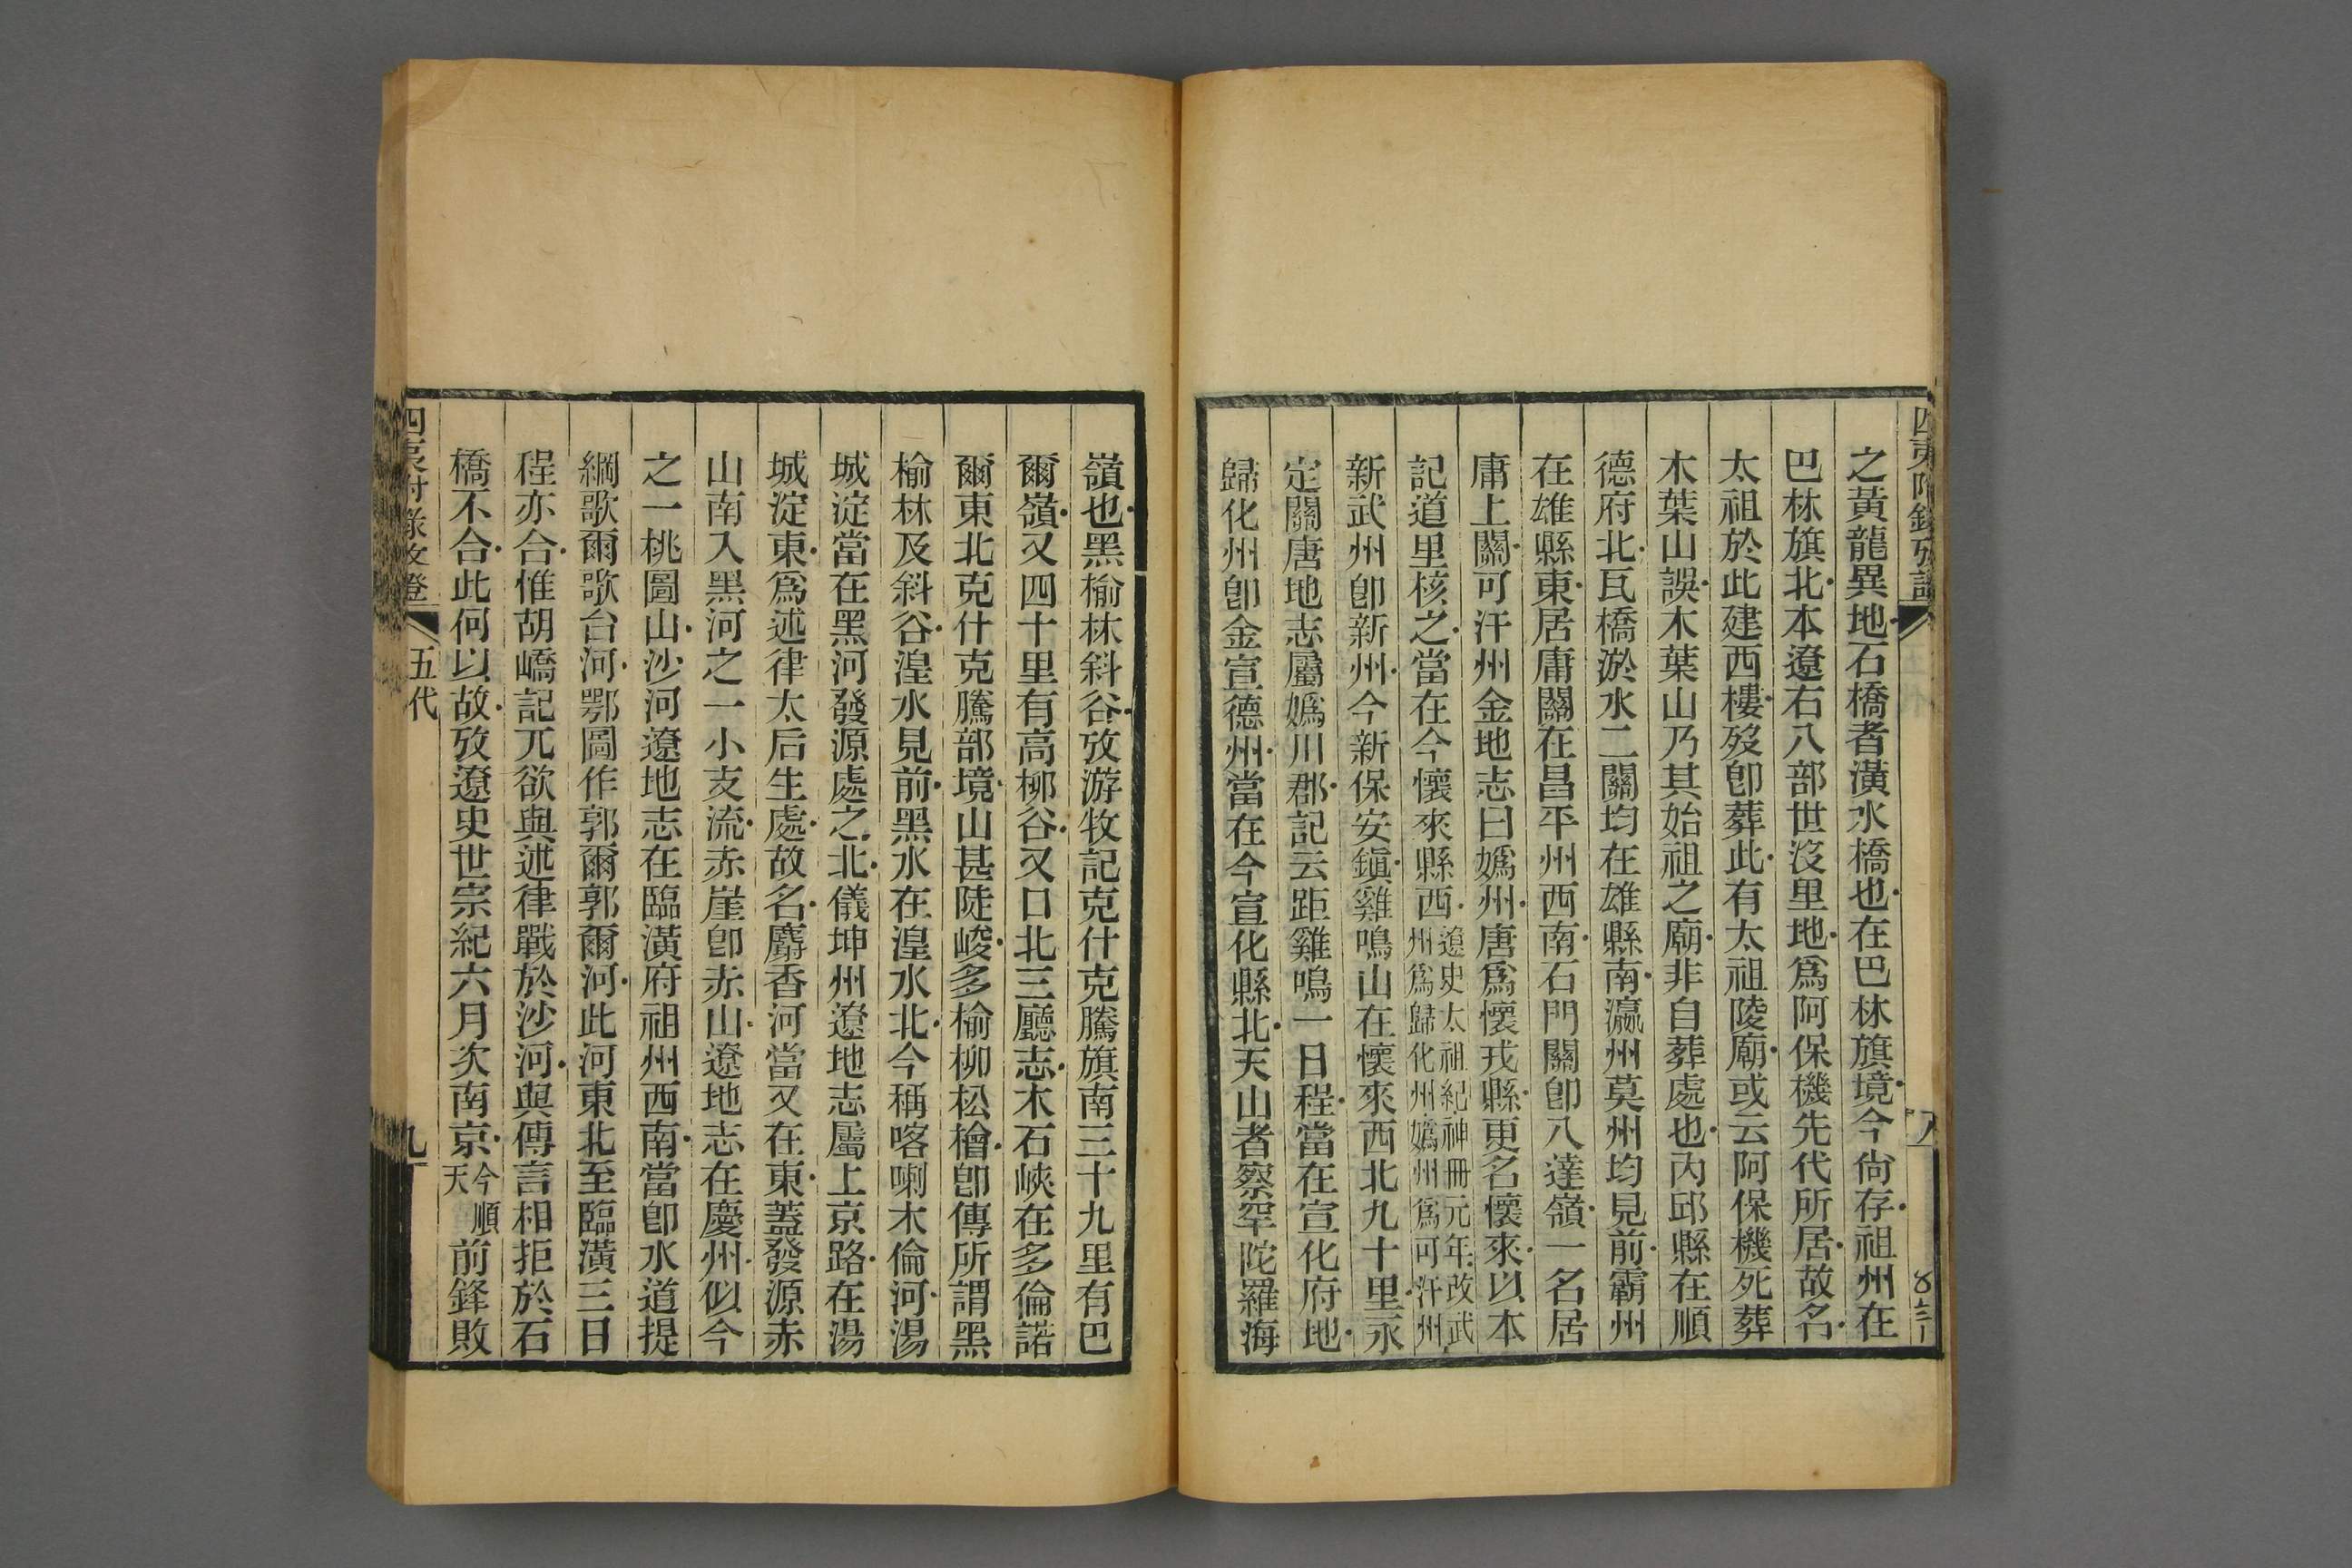 四夷附錄攷證
八
之黃龍異地石橋者潢水橋也在巴林旗境今尙存祖州在
巴林旗北本遼右八部世沒里地爲阿保機先代所居故名
太祖於此建西樓歿卽葬此有太祖陵廟或云阿保機死葬
木葉山誤木葉山乃其始祖之廟非自葬處也內邱縣在順
德府北瓦橋淤水二關均在雄縣南瀛州莫州均見前霸州
在雄縣東居庸關在昌平州西南石門關卽八達嶺一名居
庸上關可汗州金地志曰媯州唐爲懷戎縣更名懷來以本
記道里核之當在今懷來縣西遼史太祖紀神冊元年改武州爲歸化州媯州爲可汗州
新武州卽新州今新保安鎭雞鳴山在懷來西北九十里永
定關唐地志屬媯川郡記云距雞鳴一日程當在宣化府地
歸化州卽金宣德州當在今宣化縣北天山者察罕陀羅海
嶺也黑榆林斜谷攷游牧記克什克騰旗南三十九里有巴
爾嶺又四十里有高柳谷又口北三廳志木石峽在多倫諾
爾東北克什克騰部境山甚陡峻多榆柳松檜卽傳所謂黑
榆林及斜谷湟水見前黑水在湟水北今稱喀喇木倫河湯
城淀當在黑河發源處之北儀坤州遼地志屬上京路在湯
城淀東爲述律太后生處故名麝香河當又在東蓋發源赤
山南入黑河之一小支流赤崖卽赤山遼地志在慶州似今
之一桃圖山沙河遼地志在臨潢府祖州西南當卽水道提
綱歌爾歌台河鄂圖作郭爾郭爾河此河東北至臨潢三日
程亦合惟胡嶠記兀欲與述律戰於沙河與傳言相拒於石
橋不合此何以故攷遼史世宗紀六月次南京今順天前鋒敗
四夷附錄攷證
五代
九